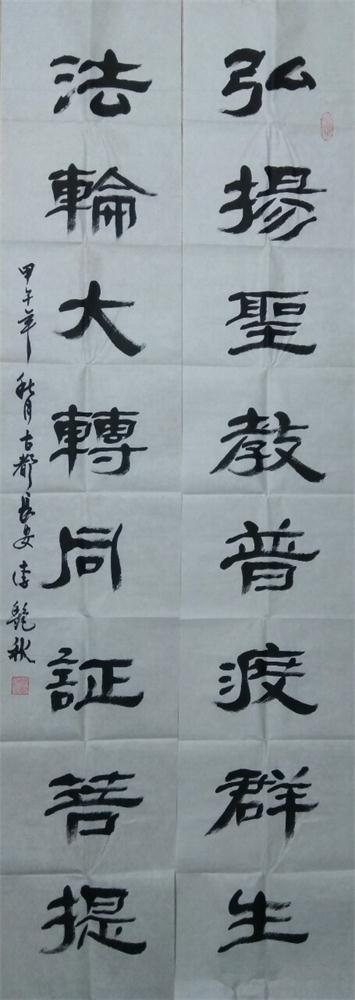 弘揚聖教普渡群生
法輪大轉同証菩提
甲午年秋月古都長安李艷秋